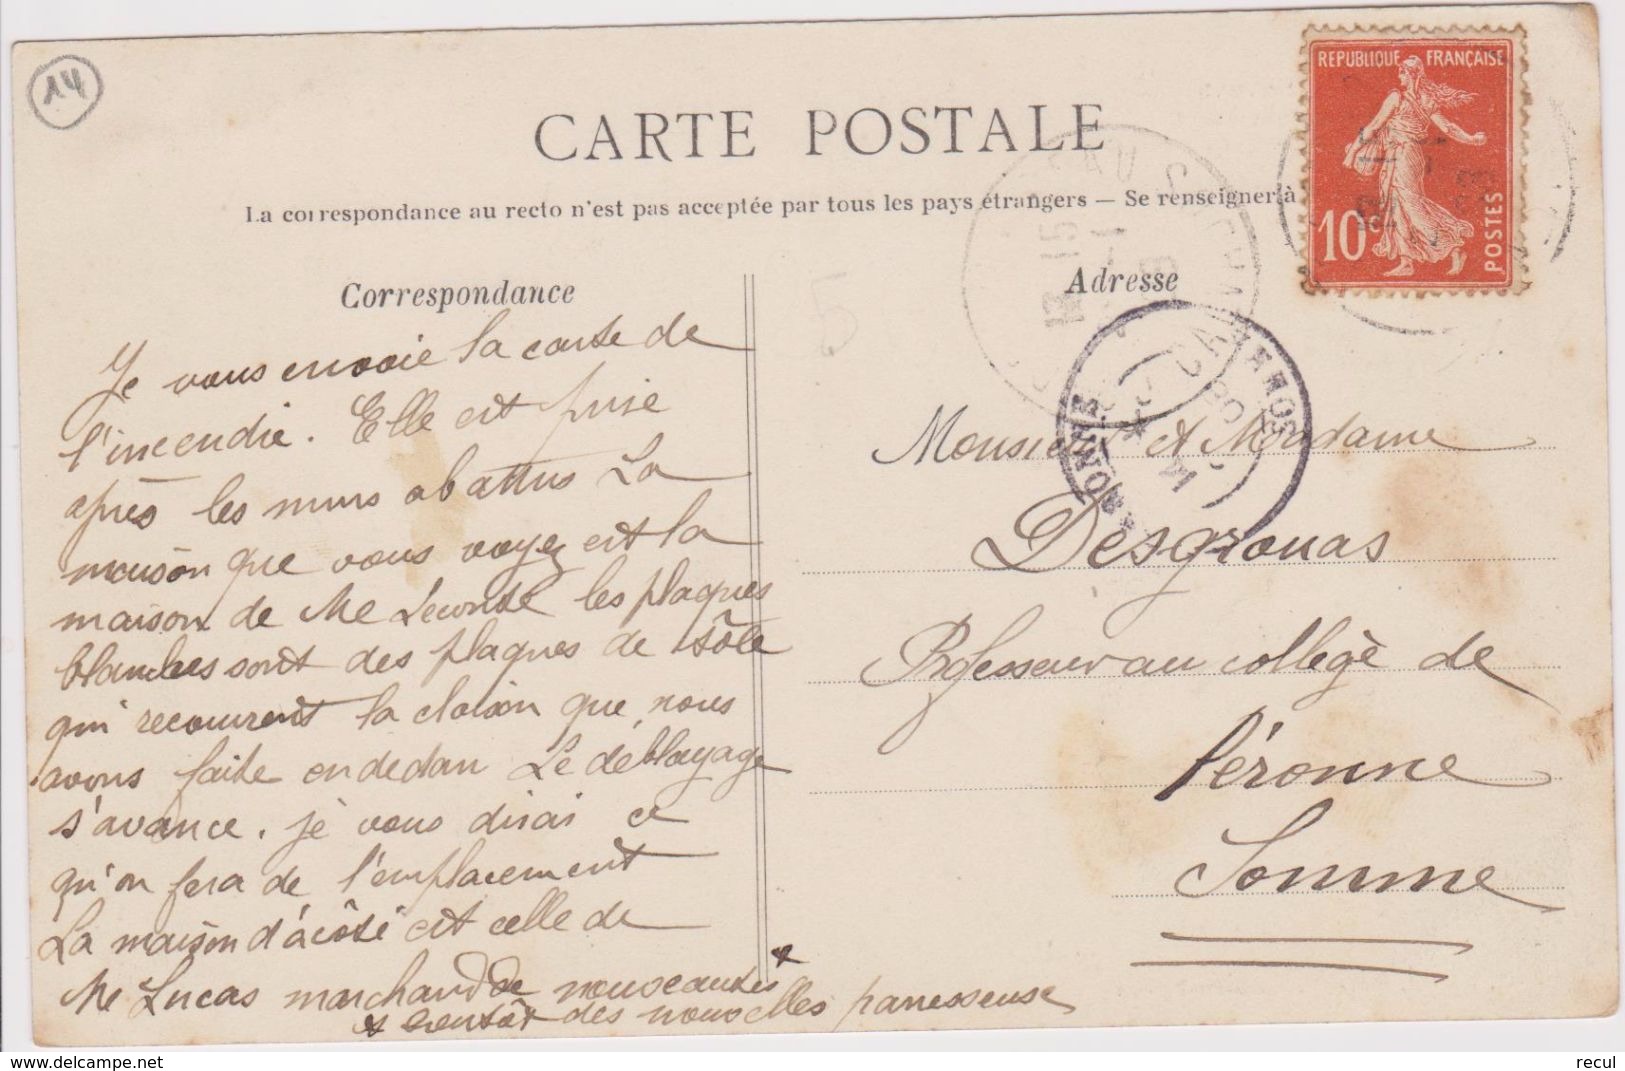 14
CARTE POSTALE
La correspondance au recto n'est pas acceptée par tous les pays étrangers — Se renseigner à
REPUBLIQUE FRANÇAISE
10c
POSTES
Correspondance
Adresse
Je vous envoie la carte de
l'incendie. Elle est prise
après les murs abattus La
maison que vous voyez est la
maison de Me Leconte les plaques
blanches sont des plaques de tôle
qui recouvrent la cloison que nous
avons faite en dedan Le déblayage
s'avance. je vous dirai ce
qu'on fera de l'emplacement
La maison d'à côté est celle de
Me Lucas marchand de nouveautés
A bientôt des nouvelles paresseuse
Monsieur et Madame
Desgrouas
Professeur au collège de
Péronne
Somme
PERONNE
SOMME
5
recul
www.delcampe.net